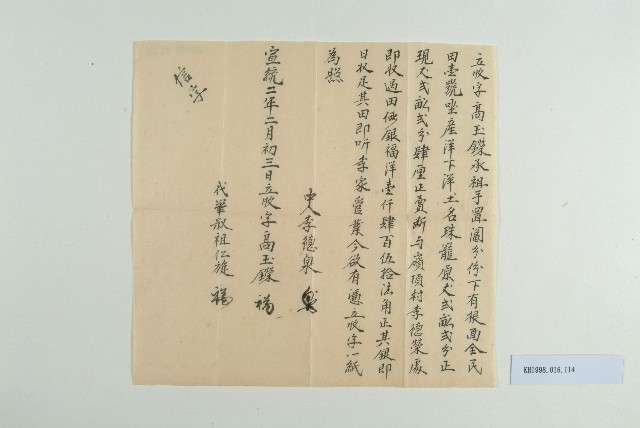 立收字高玉鏗承祖手置闔分份下有根面全民
田壹號坐產洋下洋土名珠籠原丈弍畝弍分正
現丈弍畝弍分肆厘正賣斷与嶺頂村李德榮處
即收過田価銀福洋壹仟肆百伍拾法角正其銀即
日收足其田即听李家管業今欲有憑立收字一紙
為照
中人李德泉
宣統二年二月初三日立收字高玉鏗
代筆叔祖仁旋
信字
KH1998.016.114